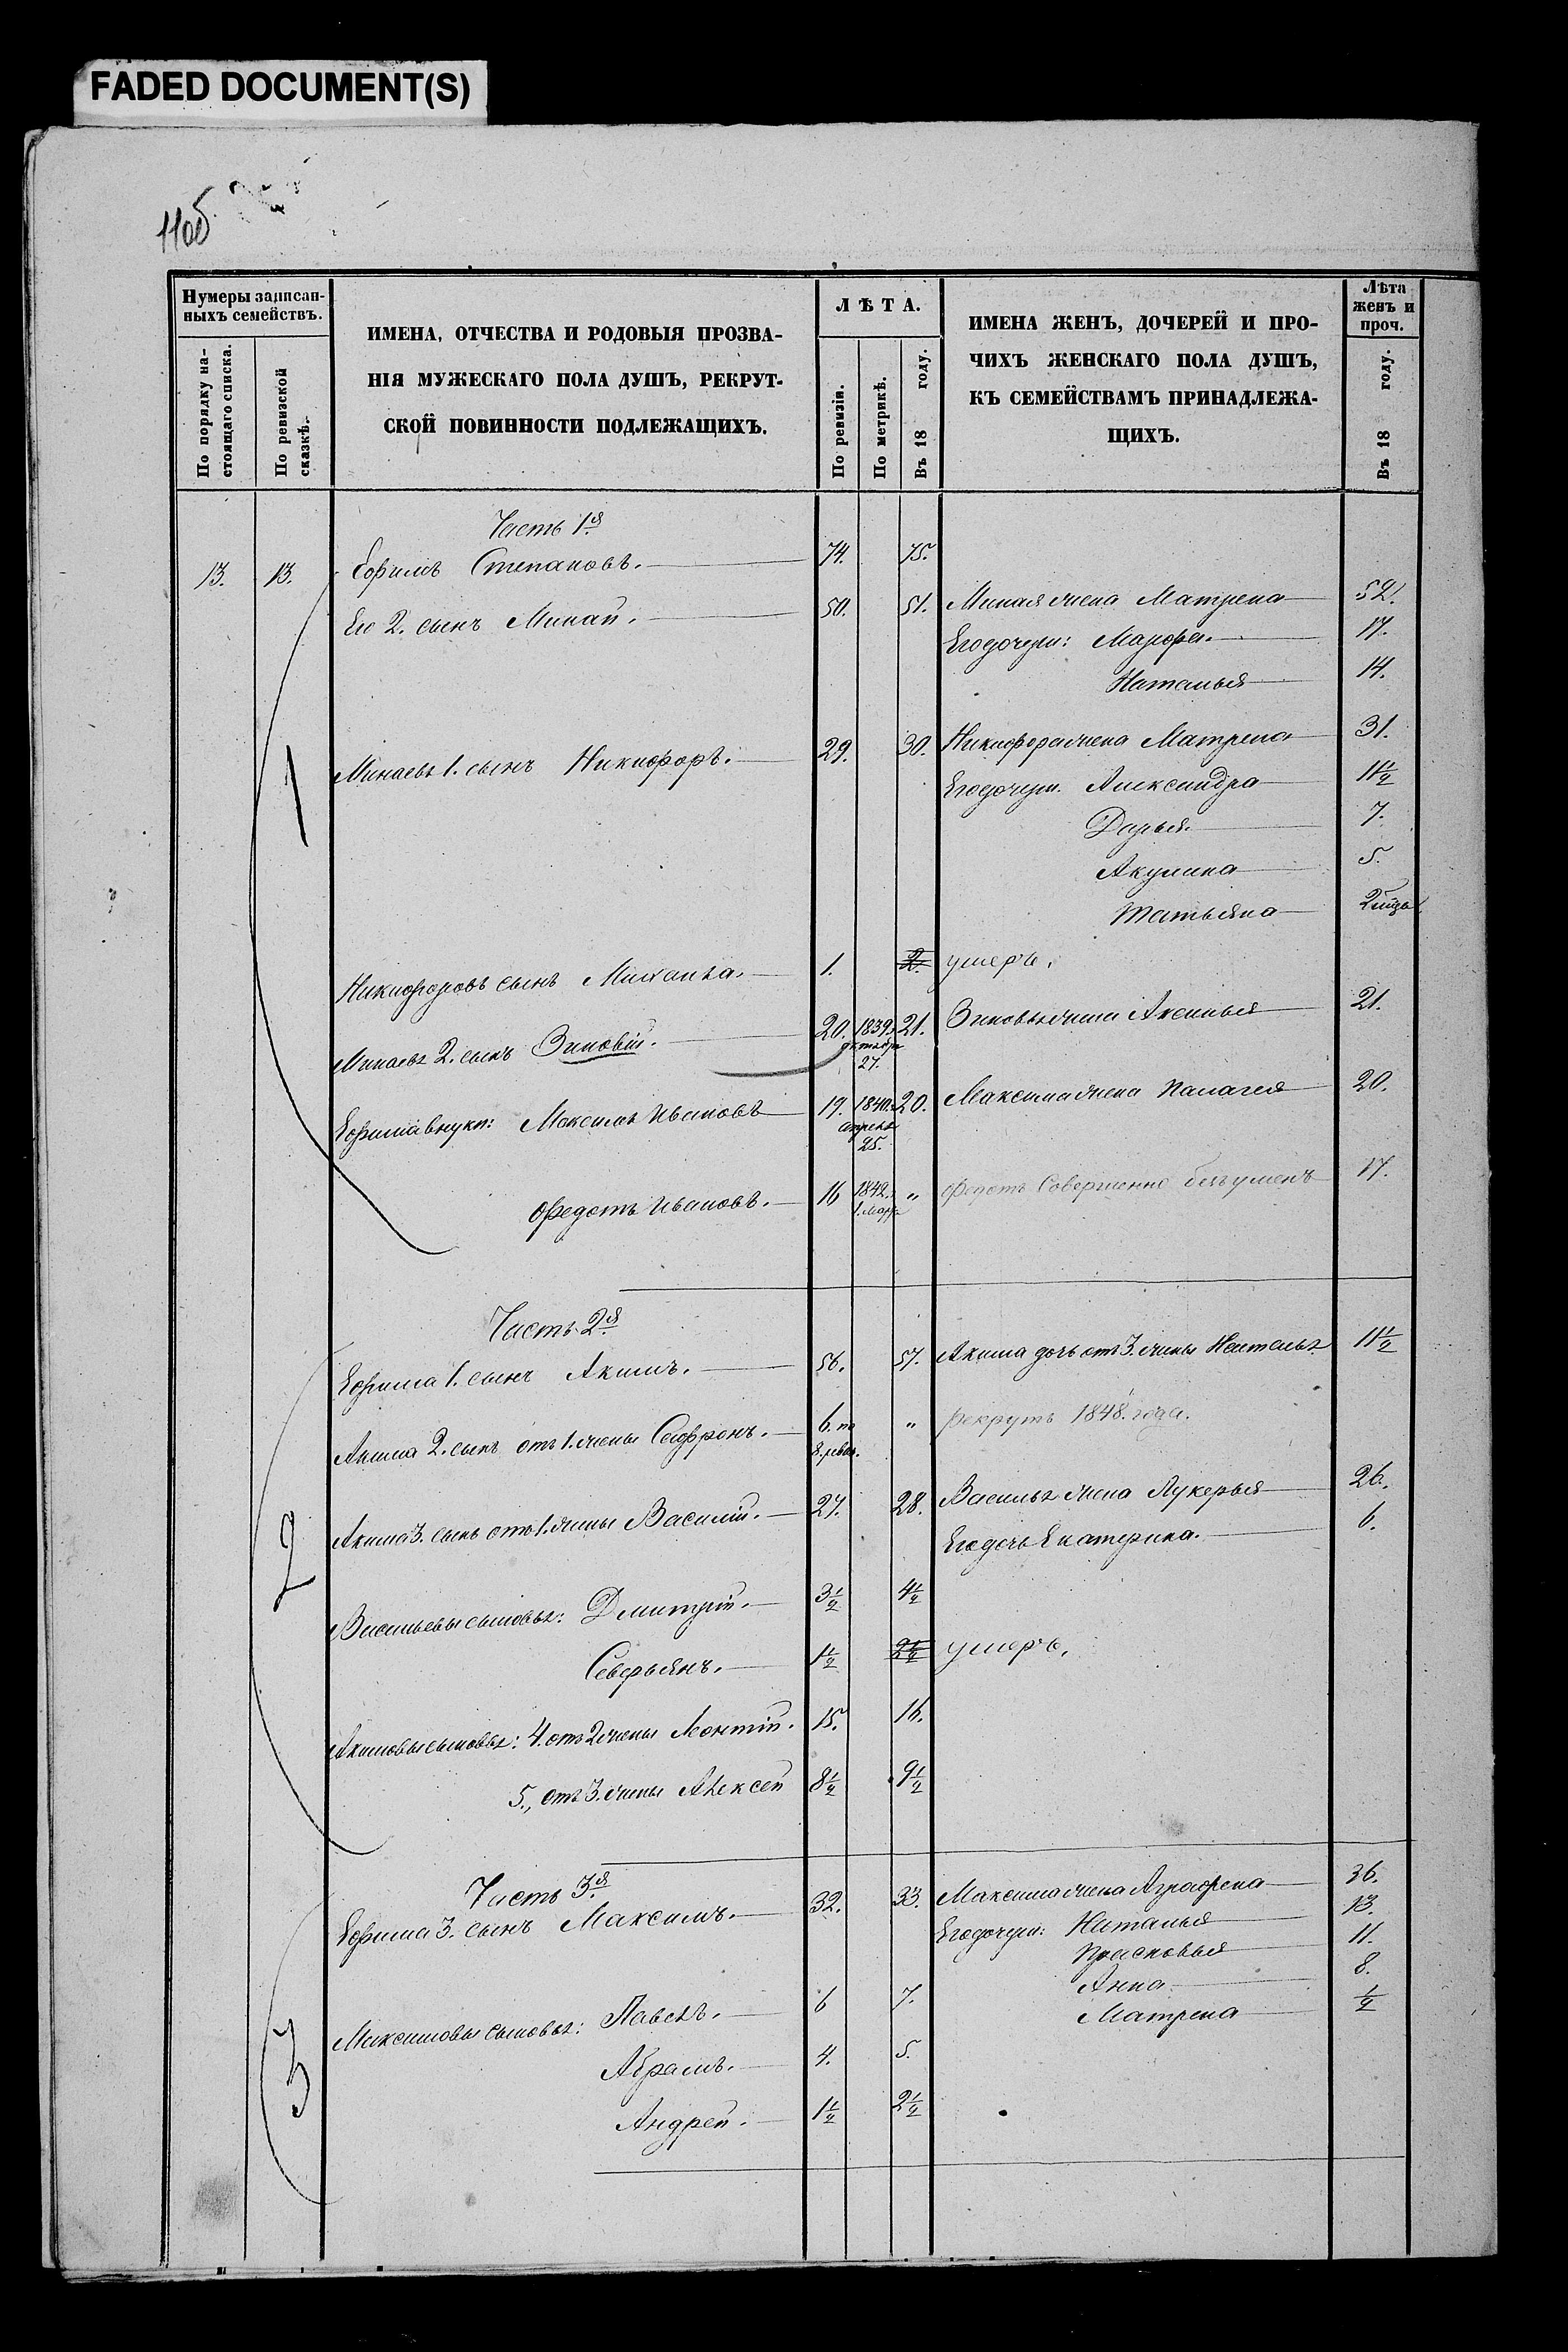 FADED DOCUMENT(S)
11об.
Нумеры записан-
ныхъ семействъ.
По порядку на-
стоящаго списка.
По ревизской
сказкѣ.
ИМЕНА, ОТЧЕСТВА И РОДОВЫЯ ПРОЗВА-
НІЯ МУЖЕСКАГО ПОЛА ДУШЪ, РЕКРУТ-
СКОЙ ПОВИННОСТИ ПОДЛЕЖАЩИХЪ.
ЛѢТА.
По ревизіи.
По метрикѣ.
Въ 18 году.
ИМЕНА ЖЕНЪ, ДОЧЕРЕЙ И ПРО-
ЧИХЪ ЖЕНСКАГО ПОЛА ДУШЪ,
КЪ СЕМЕЙСТВАМЪ ПРИНАДЛЕЖА-
ЩИХЪ.
Лѣта
женъ и
проч.
Въ 18 году.
Часть 1я
13. 13. Ефимъ Степановъ. 74. 75.
Его 2. сынъ Минай. 50. 51. Миная жена Матрена 52.
Его дочери: Марфа. 17.
Наталья 14.
1
Минаевъ 1. сынъ Никифоръ. 29. 30. Никифора жена Матрена 31.
Его дочери. Александра 11½
Дарья. 7.
Акулина 5.
Татьяна 2
Никифоровъ сынъ Михаила. 1. 2. умеръ.
Минаевъ 2. сынъ Зиновій. 20. 1839. октября 27. 21. Зиновья жена Аксинья 21.
Ефима внуки: Максимъ Ивановъ 19. 1840. апрель 25. 20. Максима жена Палагея 20.
Федотъ Ивановъ. 16 1842. 1. марта " Федотъ Совершенно безъуменъ 17.
Часть 2я
Ефима 1. сынъ Акимъ. 56. 57. Акима дочь отъ 3. жены Наталья 11½
Акима 2. сынъ отъ 1. жены Сафронъ. 6. по 8. ревиз. " рекрутъ 1848. года.
2
Акима 3. сынъ отъ 1. жены Василій. 27. 28. Василья жена Лукерья 26.
Его дочь Екатерина. 6.
Васильевы сыновья: Дмитрій. 3½ 4½
Северьянъ. 1½ 2½ умеръ.
Акимовы сыновья: 4. отъ 2 жены Леонтій. 15. 16.
5., отъ 3. жены Алексей 8½ 9½
Часть 3я
Ефима 3. сынъ Максимъ. 32. 33. Максима жена Аграфена 36.
Его дочери: Наталья 13.
Прасковья 11.
Анна 8.
Матрена ½
3
Максимовы сыновья: Павелъ. 6 7.
Абрамъ. 4. 5.
Андрей. 1½ 2½